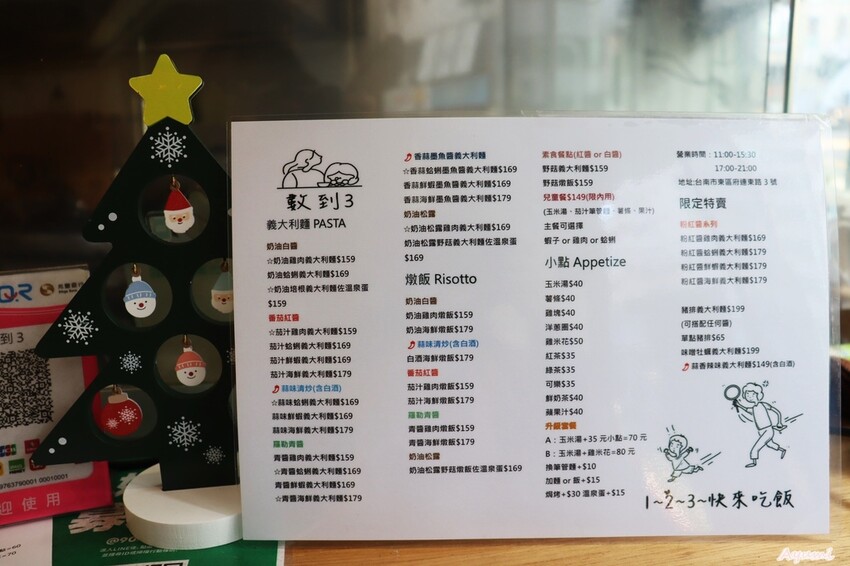 數到3
義大利麵 PASTA
奶油白醬
☆奶油雞肉義大利麵$159
奶油蛤蜊義大利麵$169
☆奶油培根義大利麵佐溫泉蛋
$159
番茄紅醬
☆茄汁雞肉義大利麵$159
茄汁蛤蜊義大利麵$169
茄汁鮮蝦義大利麵$169
茄汁海鮮義大利麵$179
蒜味清炒(含白酒)
☆蒜味蛤蜊義大利麵$169
蒜味鮮蝦義大利麵$169
蒜味海鮮義大利麵$179
羅勒青醬
青醬雞肉義大利麵$159
☆青醬蛤蜊義大利麵$169
青醬鮮蝦義大利麵$169
☆青醬海鮮義大利麵$179
香蒜墨魚醬義大利麵
☆香蒜蛤蜊墨魚醬義大利麵$169
香蒜鮮蝦墨魚醬義大利麵$169
香蒜海鮮墨魚醬義大利麵$179
奶油松露
☆奶油松露雞肉義大利麵$169
奶油松露野菇義大利麵佐溫泉蛋
$169
燉飯 Risotto
奶油白醬
奶油雞肉燉飯$159
奶油海鮮燉飯$179
蒜味清炒(含白酒)
白酒海鮮燉飯$179
番茄紅醬
茄汁雞肉燉飯$159
茄汁海鮮燉飯$179
羅勒青醬
青醬雞肉燉飯$159
青醬海鮮燉飯$179
奶油松露
奶油松露野菇燉飯佐溫泉蛋$169
素食餐點(紅醬 or 白醬)
野菇義大利麵$159
野菇燉飯$159
兒童餐$149(限內用)
(玉米湯、茄汁筆管麵、薯條、果汁)
主餐可選擇
蝦子 or 雞肉 or 蛤蜊
小點 Appetize
玉米湯$40
薯條$40
雞塊$40
洋蔥圈$40
雞米花$50
紅茶$35
綠茶$35
可樂$35
鮮奶茶$40
蘋果汁$40
升級套餐
A：玉米湯+35 元小點=70 元
B：玉米湯+雞米花=80 元
換筆管麵+$10
加麵 or 飯+$15
焗烤+$30 溫泉蛋+$15
營業時間：11:00-15:30
17:00-21:00
地址:台南市東區府連東路 3 號
限定特賣
粉紅醬系列
粉紅醬雞肉義大利麵$169
粉紅醬蛤蜊義大利麵$179
粉紅醬鮮蝦義大利麵$179
粉紅醬海鮮義大利麵$179
豬排義大利麵$199
(可搭配任何醬)
單點豬排$65
味噌牡蠣義大利麵$199
蒜香辣味義大利麵$149(含白酒)
1~2~3~快來吃飯
QR
到 3
JCB
9763790001 00010001
迎 使用
Ayumi